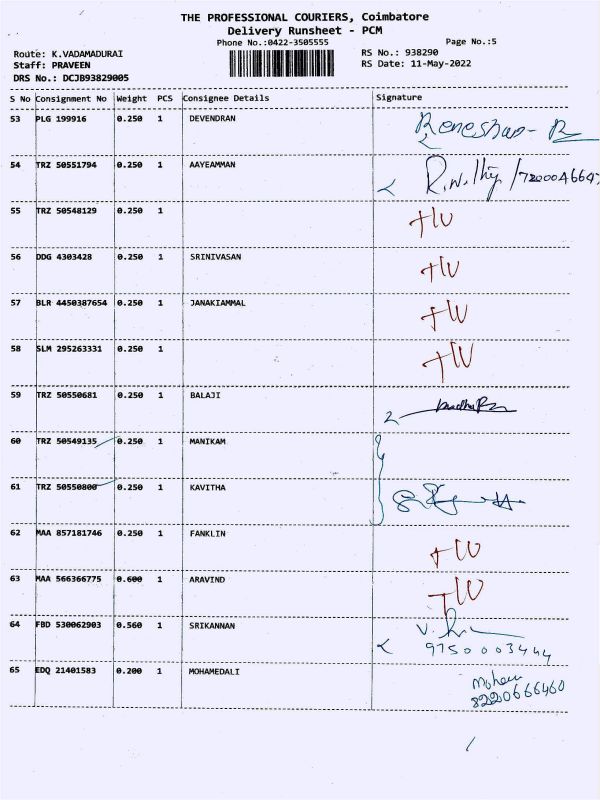 THE PROFESSIONAL COURIERS, Coimbatore
Delivery Runsheet - PCM
Phone No.:0422-3505555 Page No.:5
Route: K.VADAMADURAI RS No.: 938290
Staff: PRAVEEN RS Date: 11-May-2022
DRS No.: DCJB93829005
S No Consignment No Weight PCS Consignee Details Signature
53 PLG 199916 0.250 1 DEVENDRAN
54 TRZ 50551794 0.250 1 AAYEAMMAN
55 TRZ 50548129 0.250 1
56 DDG 4303428 0.250 1 SRINIVASAN
57 BLR 4450387654 0.250 1 JANAKIAMMAL
58 SLM 295263331 0.250 1
59 TRZ 50550681 0.250 1 BALAJI
60 TRZ 50549135 0.250 1 MANIKAM
61 TRZ 50550800 0.250 1 KAVITHA
62 MAA 857181746 0.250 1 FANKLIN
63 MAA 566366775 0.600 1 ARAVIND
64 FBD 530062903 0.560 1 SRIKANNAN
9750003444
65 EDQ 21401583 0.200 1 MOHAMEDALI
8220666460